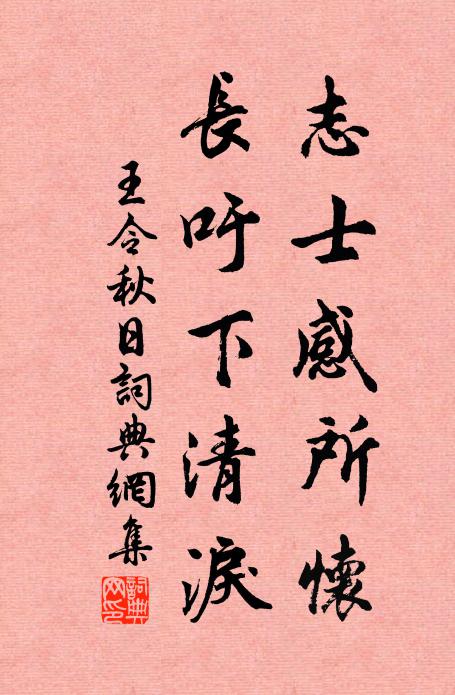 志士感所懷
長吁下清淚
王令秋日詞典網集
詞典網印